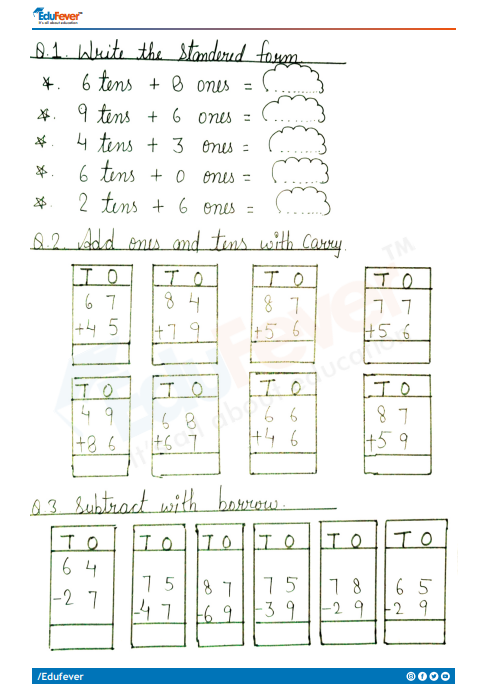 EduFever
It's all about education
Q.1. Write the Standered form.
☆. 6 tens + 8 ones = (.........)
☆. 9 tens + 6 ones = (.........)
☆. 4 tens + 3 ones = (.........)
☆. 6 tens + 0 ones = (.........)
☆. 2 tens + 6 ones = (.........)
Q.2. Add ones and tens with carry.
T O T O T O T O
6 7 8 4 8 7 7 7
+4 5 +7 9 +5 6 +5 6
T O T O T O T O
4 9 6 8 6 6 8 7
+8 6 +6 7 +4 6 +5 9
EduFever™
It's all about education
Q.3 Subtract with borrow.
T O T O T O T O T O T O
6 4 7 5 8 7 7 5 7 8 6 5
-2 7 -4 7 -6 9 -3 9 -2 9 -2 9
/Edufever